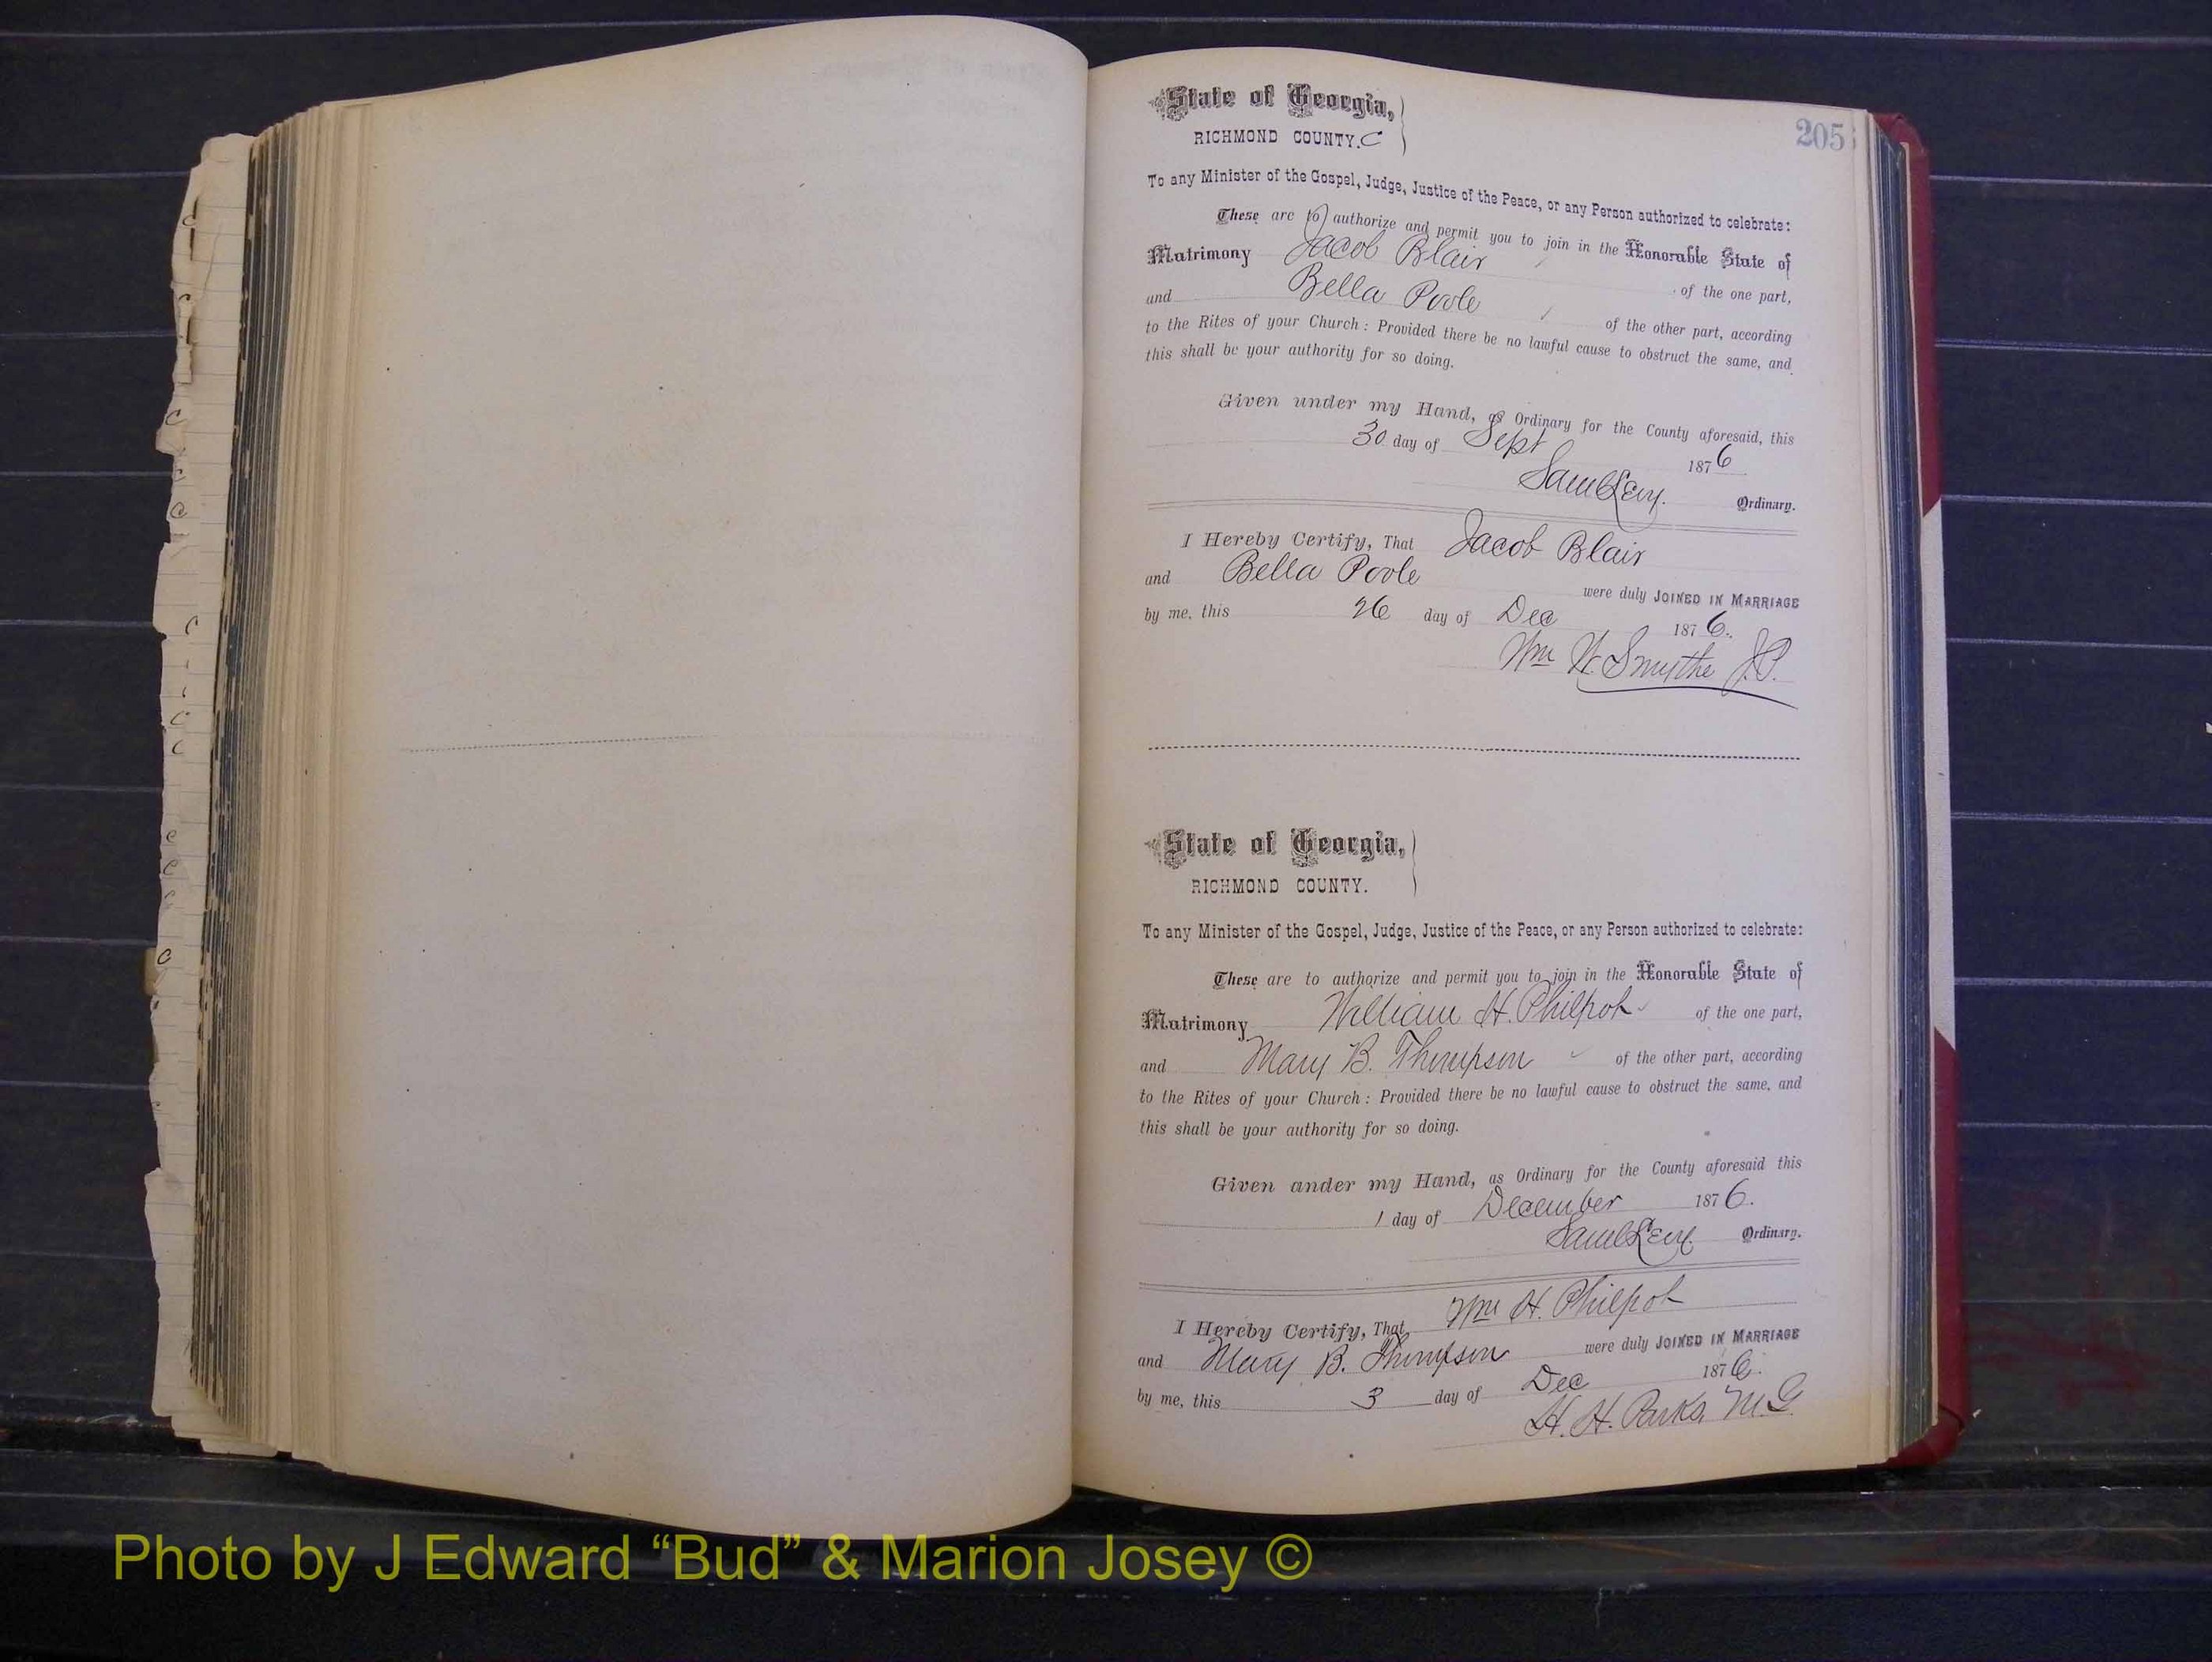 205
State of Georgia,
RICHMOND COUNTY. C
To any Minister of the Gospel, Judge, Justice of the Peace, or any Person authorized to celebrate:
These are to authorize and permit you to join in the Honorable State of
Matrimony Jacob Blair of the one part,
and Bella Poole of the other part, according
to the Rites of your Church: Provided there be no lawful cause to obstruct the same, and
this shall be your authority for so doing.
Given under my Hand, as Ordinary for the County aforesaid, this
30 day of Sept 1876
Saml Levy. Ordinary.
I Hereby Certify, That Jacob Blair
and Bella Poole were duly JOINED IN MARRIAGE
by me, this 26 day of Dec 1876.
Wm H. Smythe J.P.
State of Georgia,
RICHMOND COUNTY.
To any Minister of the Gospel, Judge, Justice of the Peace, or any Person authorized to celebrate:
These are to authorize and permit you to join in the Honorable State of
Matrimony William H. Philpot of the one part,
and Mary B. Thompson of the other part, according
to the Rites of your Church: Provided there be no lawful cause to obstruct the same, and
this shall be your authority for so doing.
Given under my Hand, as Ordinary for the County aforesaid this
1 day of December 1876.
Saml Levy Ordinary.
I Hereby Certify, That Wm H. Philpot
and Mary B. Thompson were duly JOINED IN MARRIAGE
by me, this 3 day of Dec 1876.
H. H. Parks M.G.
Photo by J Edward “Bud” & Marion Josey ©